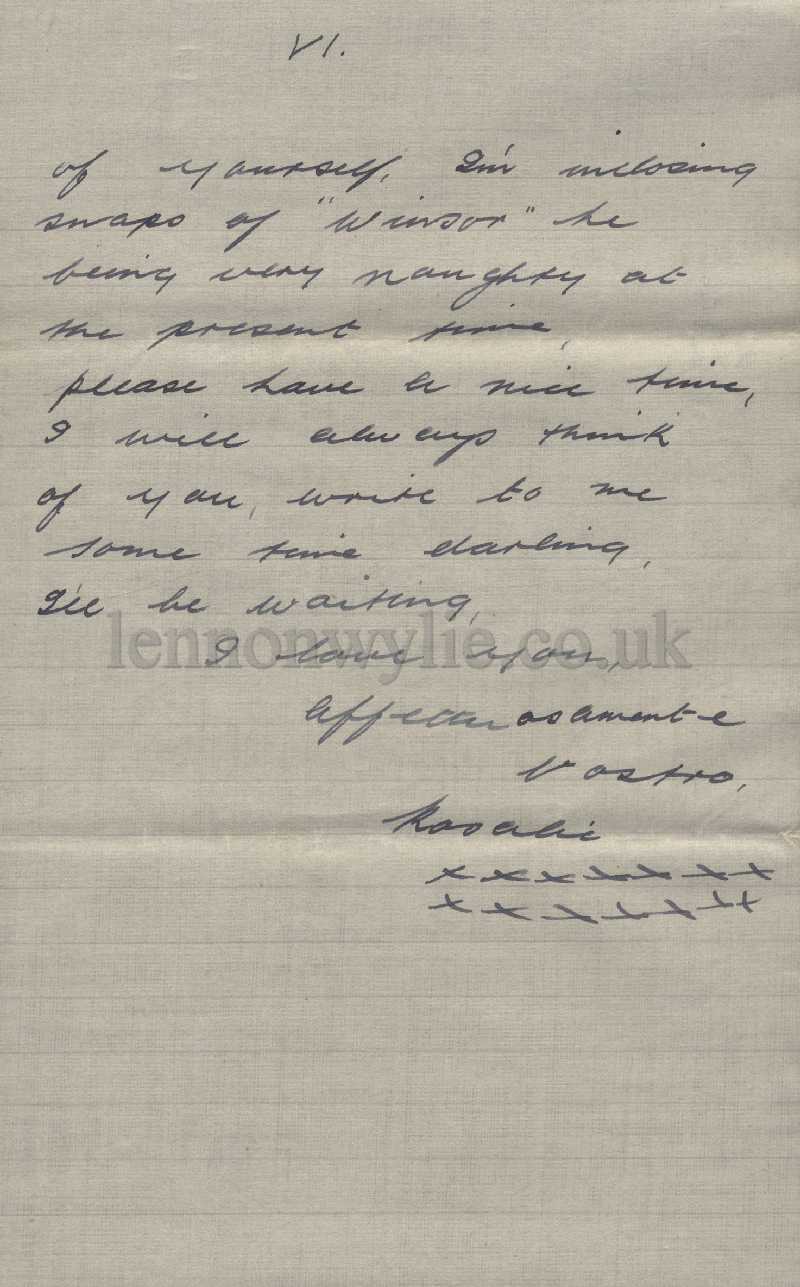 VI.
of yourself, I'm inclosing
snaps of "Winsor" he
being very naughty at
the present time,
please have a nice time,
I will always think
of you, write to me
some time darling,
I'll be waiting,
lennonwylie.co.uk
I love you,
Affettuosamente
Vostro,
Rosalie
xxxxxxx
xxxxxxx